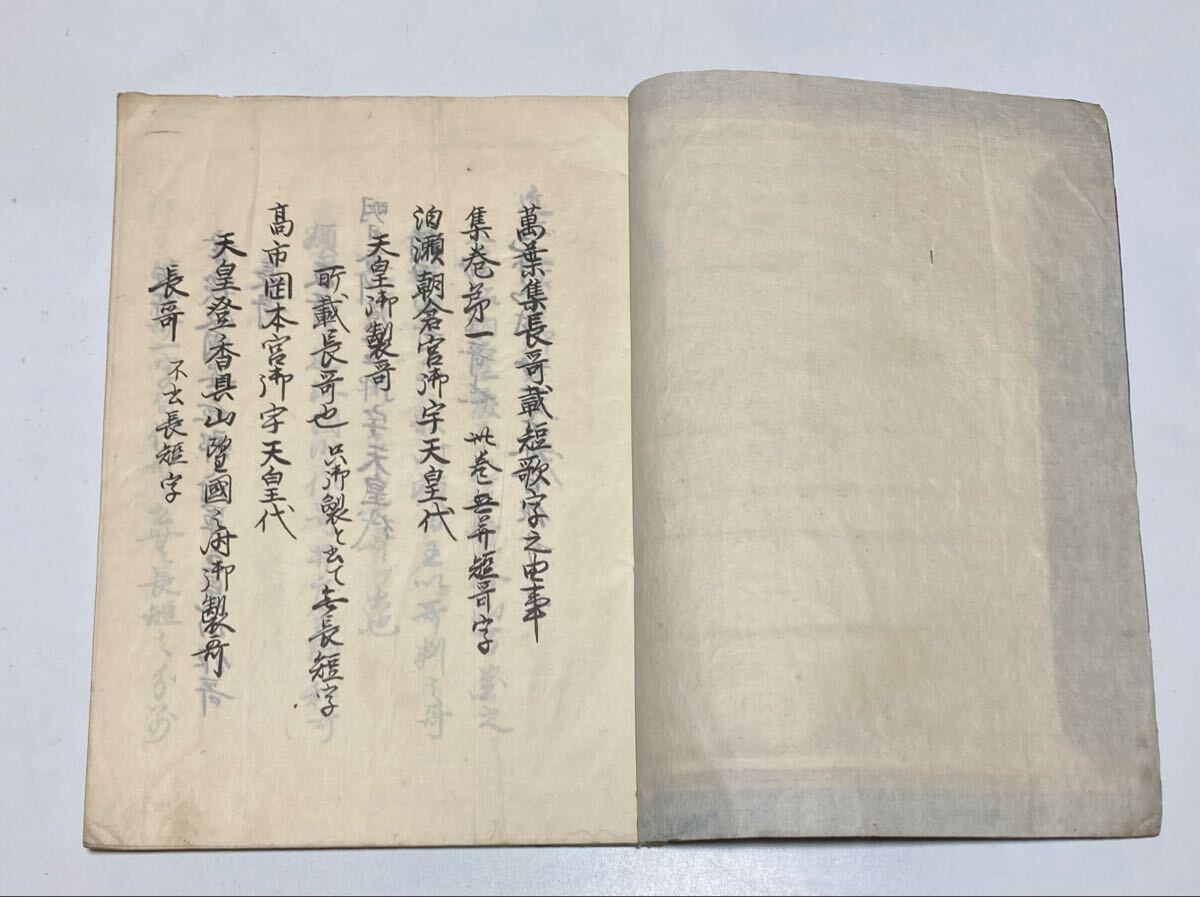 萬葉集長哥載短歌字之由事
集巻第一 此巻無并短哥字
泊瀬朝倉宮御宇天皇代
天皇御製哥
所載長哥也 只御製と云て無長短字
高市岡本宮御宇天皇代
天皇登香具山望國之時御製哥
長哥 不云長短字